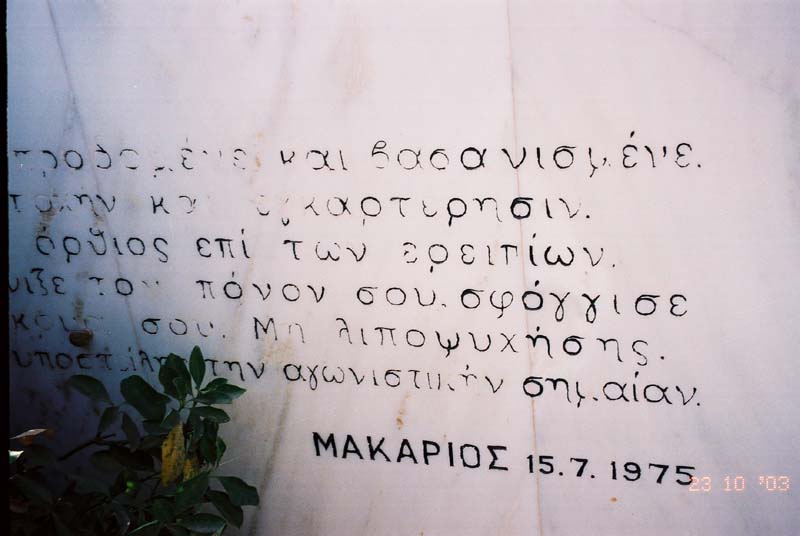 προδομένε και βασανισμένε.
και εγκαρτέρησιν.
όρθιος επί των ερειπίων.
τον πόνον σου. σφόγγισε
σου. Μη λιποψυχήσης.
υποστείλης την αγωνιστικήν σημαίαν.
ΜΑΚΑΡΙΟΣ 15.7.1975
23 10 '03